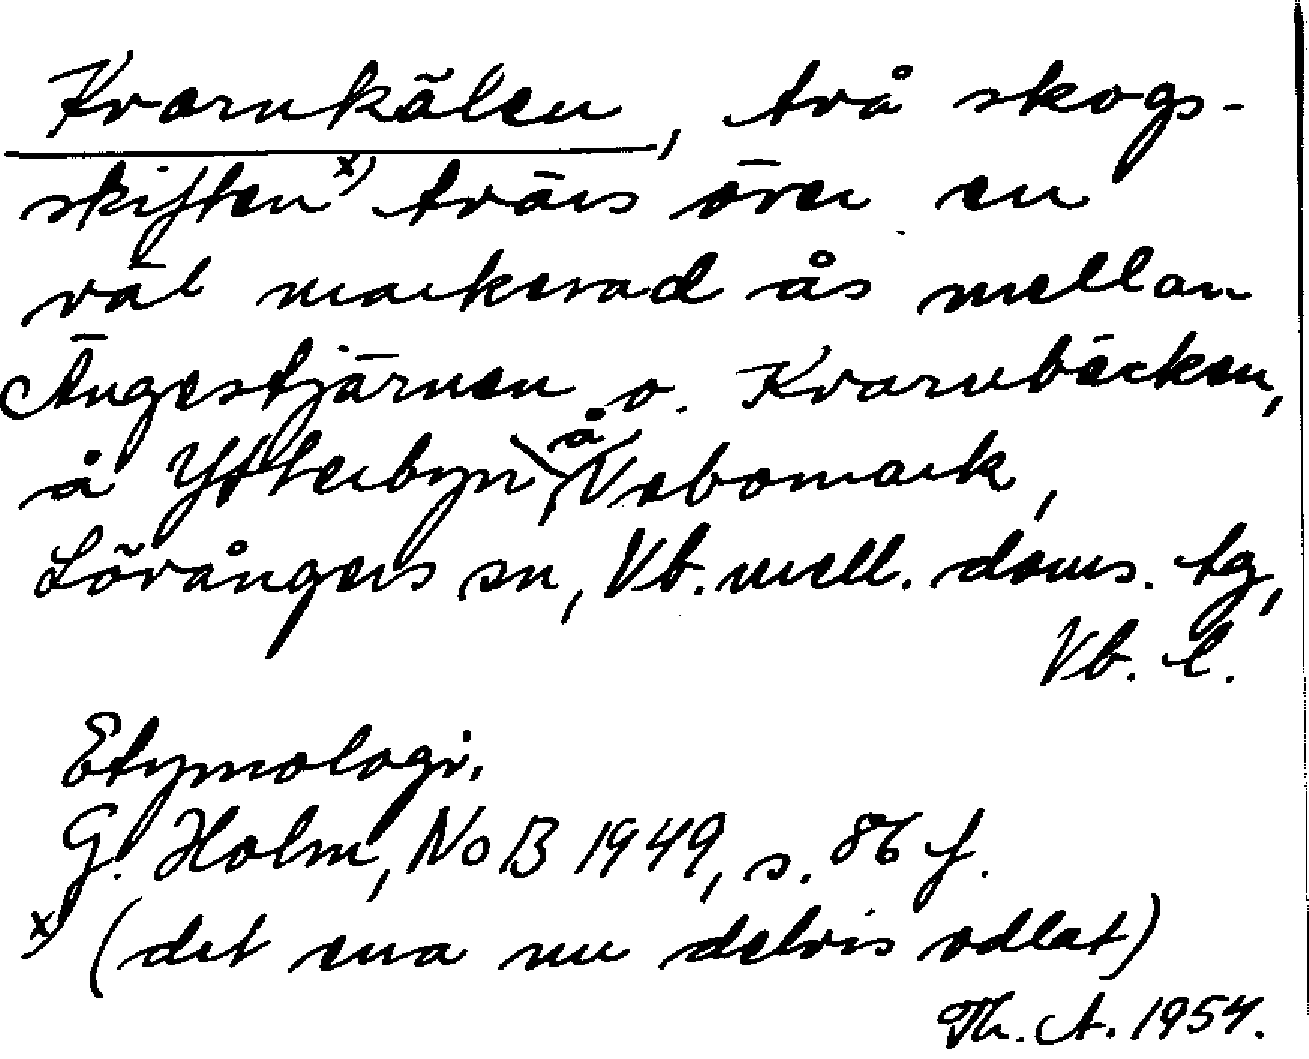 Kvarnkälen, två skogs-
skiften x) tvärs över en
väl markerad ås mellan
Ängestjärnen o. Kvarnbäcken,
å Ytterbyn, å Vebomark,
Lövångers sn, Vb. mell. doms. tg,
Vb. l.
Etymologi.
G. Holm, NoB 1949, s. 86 f.
x) (det ena nu delvis odlat)
Th. A. 1954.